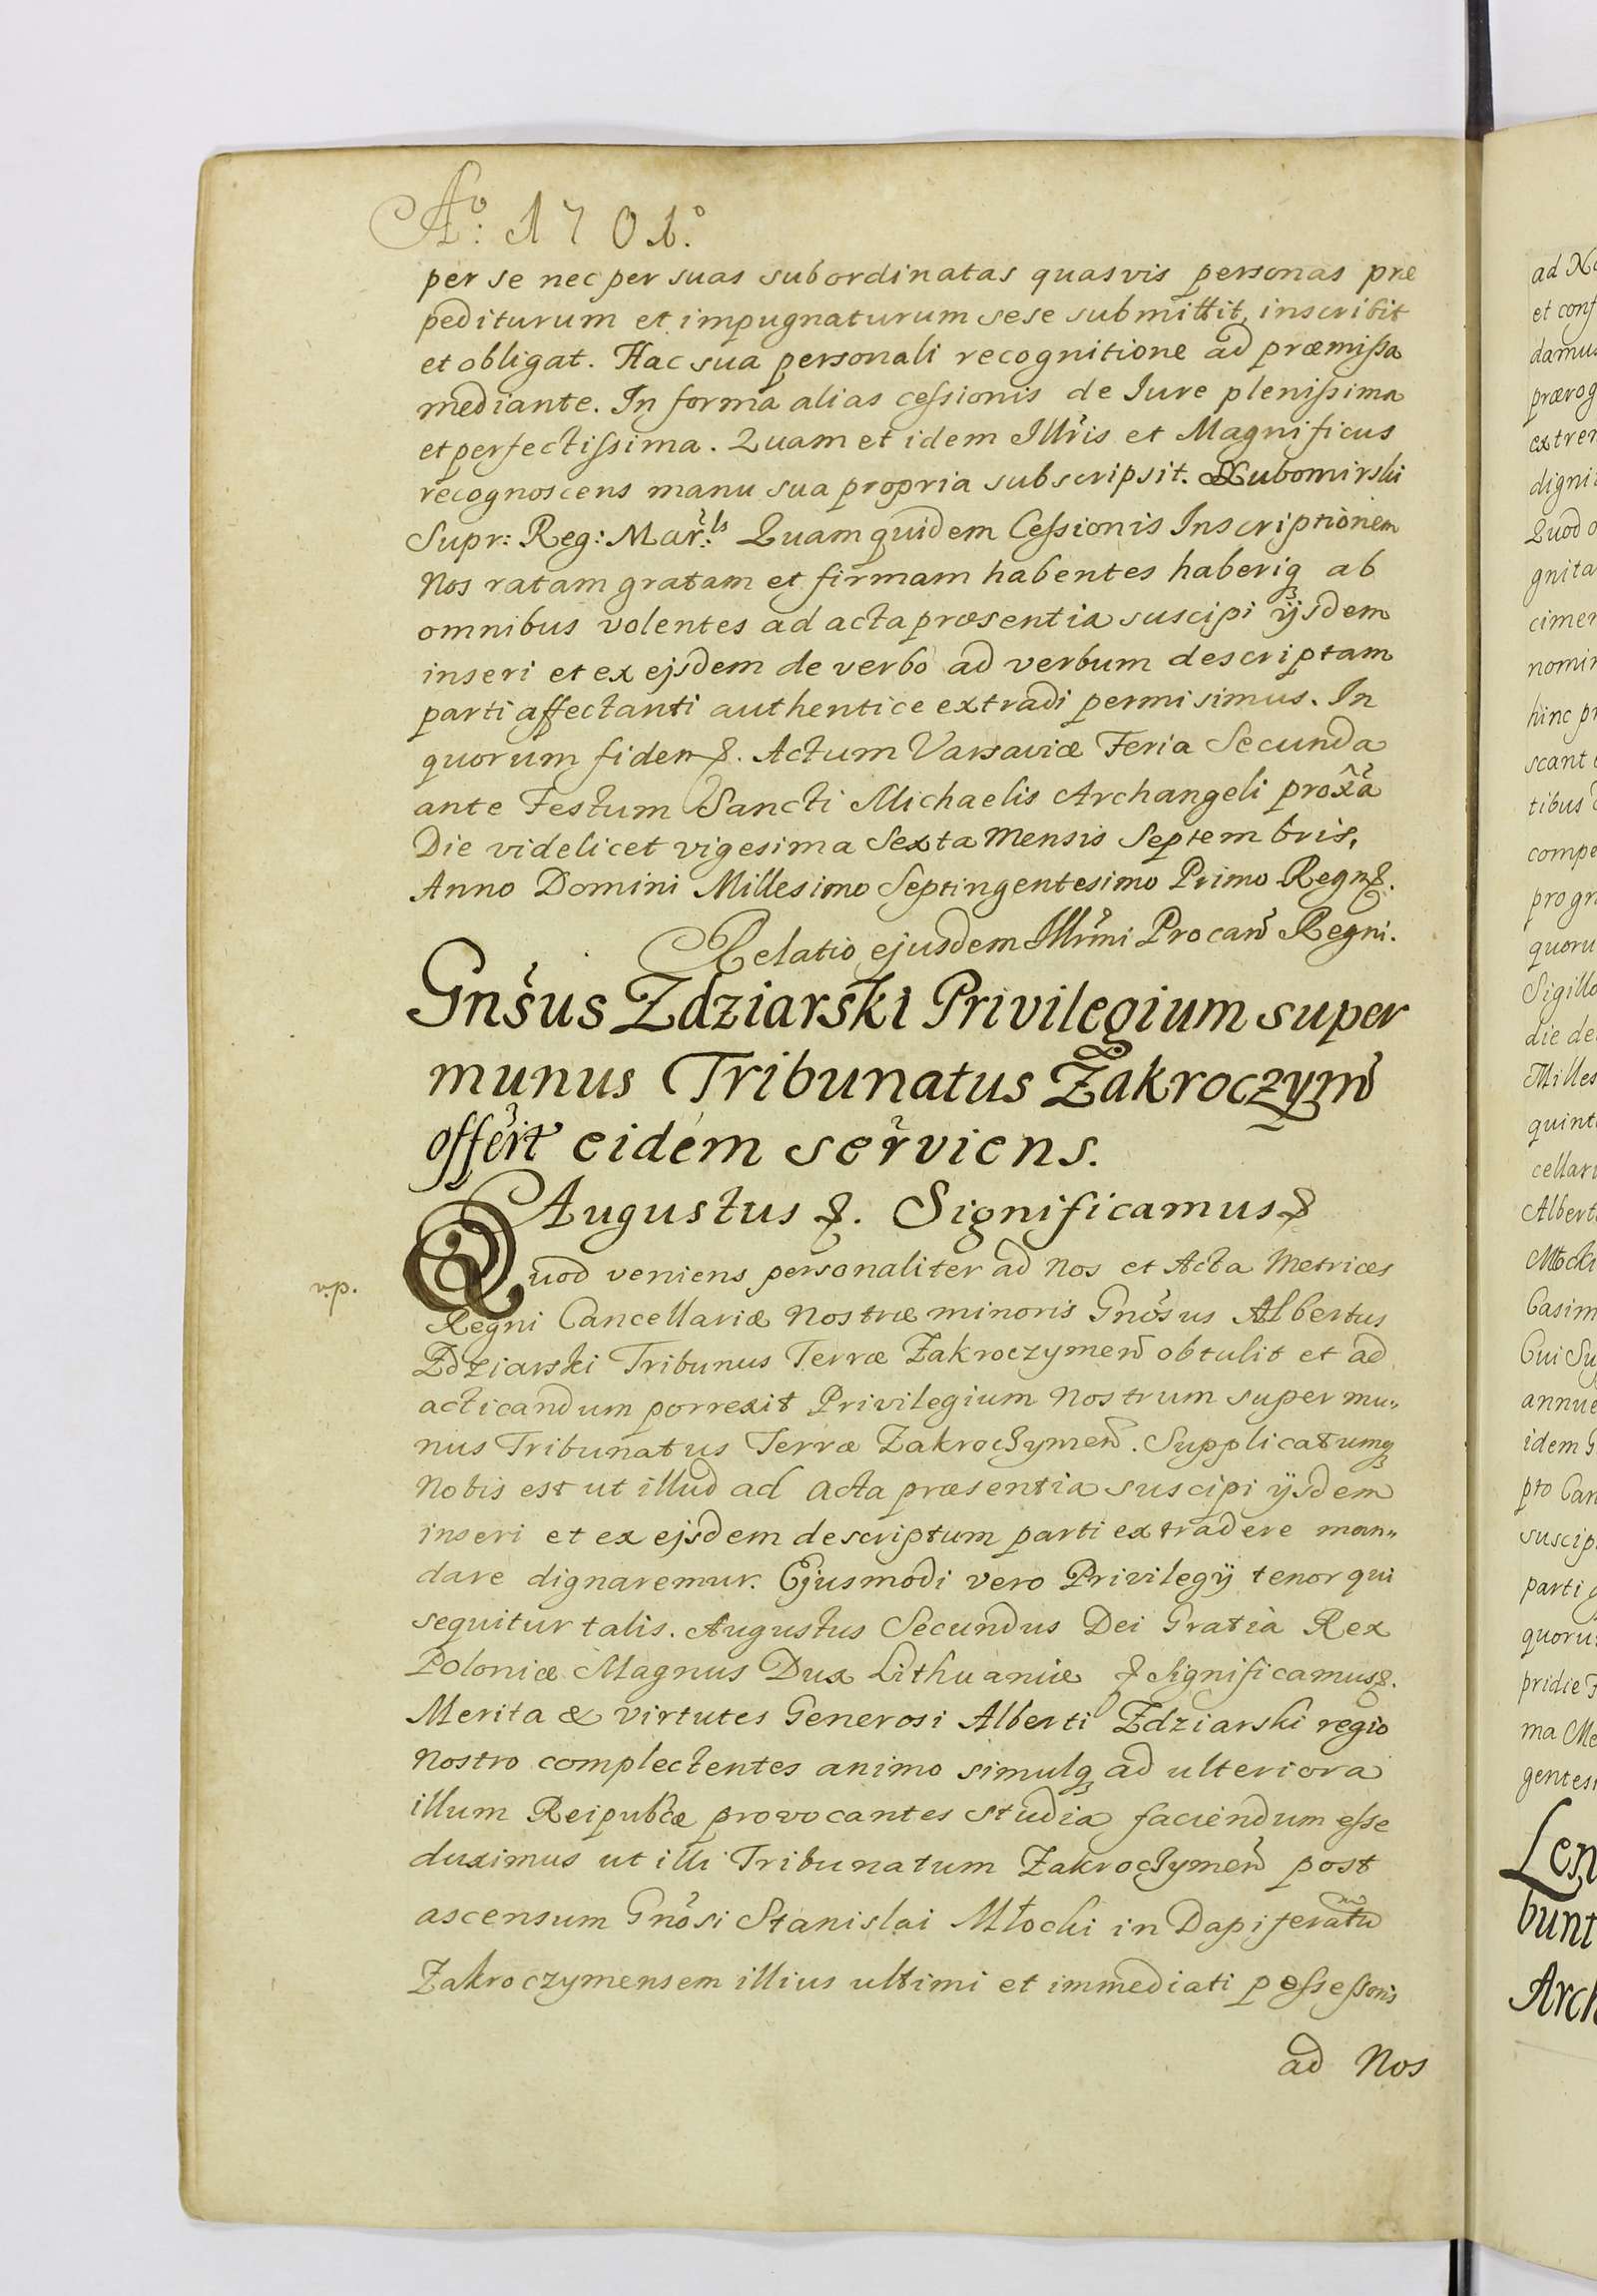 Aº: 1701º.
per se nec per suas subordinatas quasvis personas præ
pediturum et impugnaturum sese submittit, inscribit
et obligat. Hac sua personali recognitione ad præmissa
mediante. In forma alias cessionis de Iure plenissima
et perfectissima. Quam et idem Illris et Magnificus
recognoscens manu sua propria subscripsit. Lubomirski
Supr: Reg: Mar:ls Quam quidem Cessionis Inscriptionem
Nos ratam gratam et firmam habentes haberiq ab
omnibus volentes ad acta præsentia suscipi ijsdem
inseri et ex ejsdem de verbo ad verbum descriptam
parti affectanti authentice extradi permisimus. In
quorum fidem &. Actum Varsaviæ Feria Secunda
ante Festum Sancti Michaelis Archangeli proxa
Die videlicet vigesima Sexta Mensis Septembris,
Anno Domini Millesimo Septingentesimo Primo Regn&.
Relatio ejusdem Illrmi Procan Regni.
Gnsus Zdziarski Privilegium super
munus Tribunatus Zakroczym
offert eidem serviens.
Augustus &. Significamus &
Quod veniens personaliter ad Nos et Acta Metrices
Regni Cancellariæ Nostræ minoris Gnosus Albertus
Zdziarski Tribunus Terræ Zakroczymen obtulit et ad
acticandum porrexit Privilegium Nostrum super mu„
nus Tribunatus Terræ Zakroczymen. Supplicatumq
Nobis est ut illud ad acta præsentia suscipi ijsdem
inseri et ex ejsdem descriptum parti extradere man„
dare dignaremur. Ejusmodi vero Privilegij tenor qui
sequitur talis. Augustus Secundus Dei Gratia Rex
Poloniæ Magnus Dux Lithuaniæ & Significamus &.
Merita & virtutes Generosi Alberti Zdziarski regio
Nostro complectentes animo simulq ad ulteriora
illum Reipubcæ provocantes studia faciendum esse
duximus ut illi Tribunatum Zakroczymen post
ascensum Gnosi Stanislai Młocki in Dapiferatu
Zakroczymensem illius ultimi et immediati possessoris
ad Nos